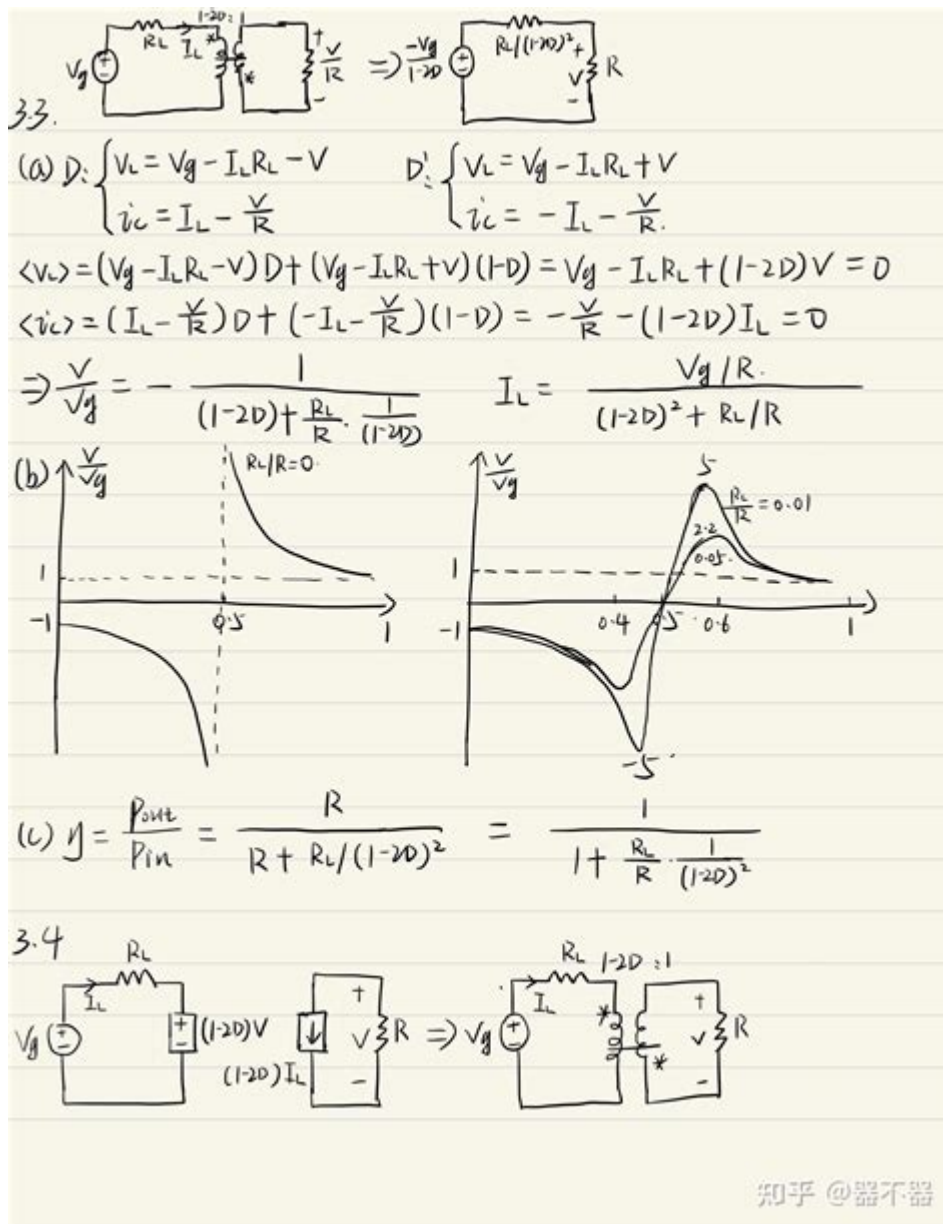 1-2D:1
Vg RL IL * * + V/R - ⇒ -Vg/1-2D RL/(1-2D)² + V - R
3.3.
(a) D: { VL = Vg - ILRL - V D': { VL = Vg - ILRL + V
ic = IL - V/R ic = - IL - V/R.
<VL> = (Vg-ILRL-V)D + (Vg-ILRL+V)(1-D) = Vg - ILRL + (1-2D)V = 0
<ic> = (IL - V/R)D + (-IL - V/R)(1-D) = - V/R - (1-2D)IL = 0
⇒ V/Vg = - 1/((1-2D) + RL/R · 1/(1-2D)) IL = (Vg/R.)/((1-2D)² + RL/R)
(b) V/Vg RL/R=0. V/Vg 5 RL/R = 0.01
2.2
0.05.
1 1
-1 0.5 1 -1 0.4 0.5 0.6 1
-5
(c) η = Pout/Pin = R/(R + RL/(1-2D)²) = 1/(1 + RL/R · 1/(1-2D)²)
3.4
RL RL 1-2D:1
Vg IL + - (1-2D)V (1-2D)IL + V - R ⇒ Vg IL * * + V - R
知乎 @器不器